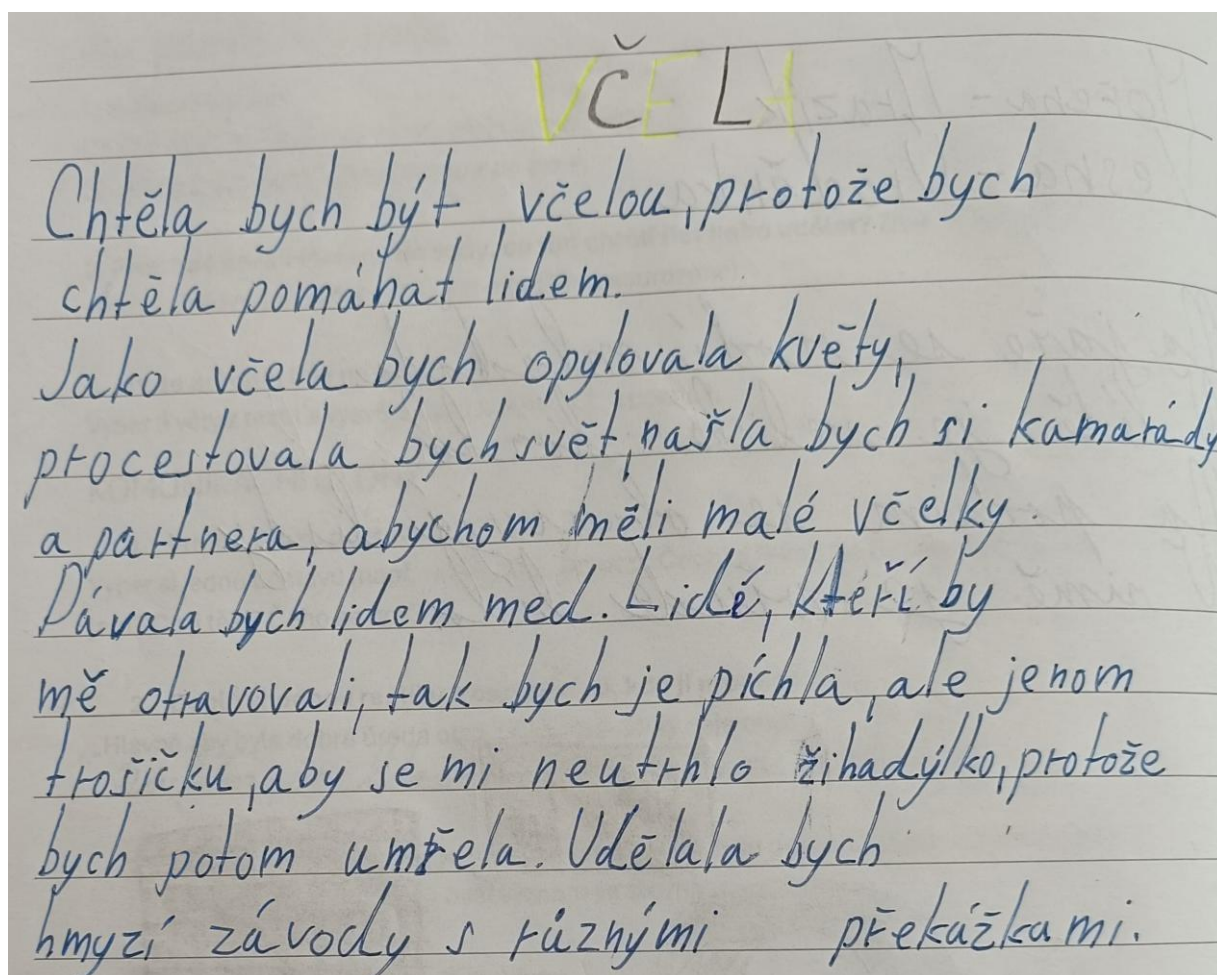 VČELA
Chtěla bych být včelou, protože bych
chtěla pomáhat lidem.
Jako včela bych opylovala květy,
procestovala bych svět, našla bych si kamarády
a partnera, abychom měli malé včelky.
Dávala bych lidem med. Lidé, kteří by
mě otravovali, tak bych je píchla, ale jenom
trošičku, aby se mi neutrhlo žihadýlko, protože
bych potom umřela. Udělala bych
hmyzí závody s různými překážkami.